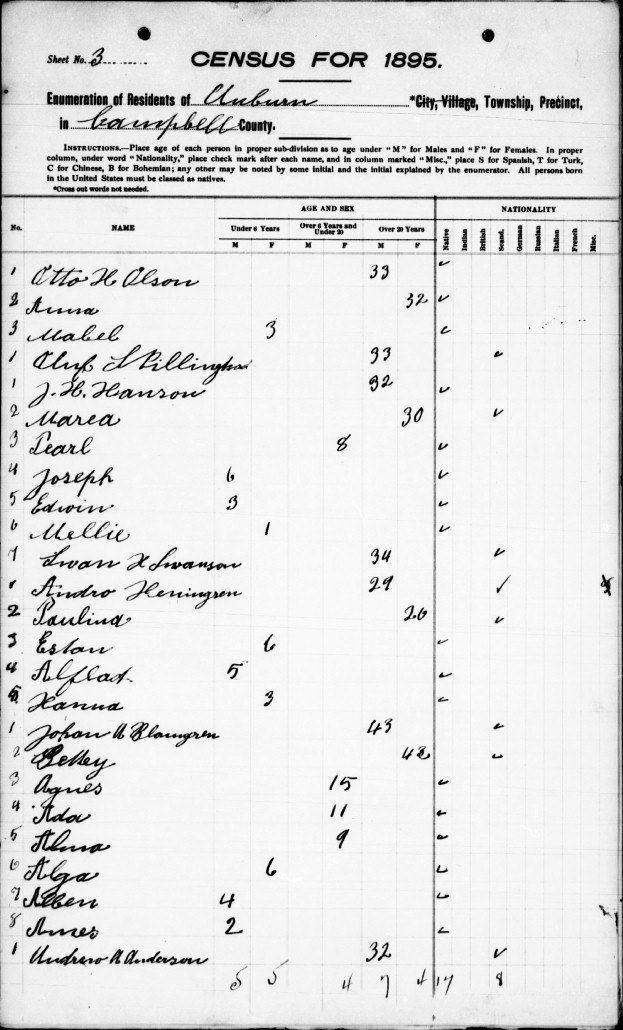 Sheet No. 3
CENSUS FOR 1895.
Enumeration of Residents of Auburn *City, Village, Township, Precinct,
in Campbell County.
INSTRUCTIONS.—Place age of each person in proper sub-division as to age under "M" for Males and "F" for Females. In proper
column, under word "Nationality," place check mark after each name, and in column marked "Misc.," place S for Spanish, T for Turk,
C for Chinese, B for Bohemian; any other may be noted by some initial and the initial explained by the enumerator. All persons born
in the United States must be classed as natives.
*Cross out words not needed.
AGE AND SEX NATIONALITY
No. NAME Under 6 Years Over 6 Years and Under 20 Over 20 Years Native Indian British Scand. German Russian Italian French Misc.
M F M F M F
1 Otto H Olson 33 ✓
2 Anna 32 ✓
3 Mabel 3 ✓
1 Oluf S 33 ✓
1 J. H. Hanson 32 ✓
2 Marea 30 ✓
3 Pearl 8 ✓
4 Joseph 6 ✓
5 Edwin 3 ✓
6 Mellie 1 ✓
7 Swan X Swanson 34 ✓
1 Andro Heningren 29 ✓
2 Paulina 26 ✓
3 Estan 6 ✓
4 5 ✓
5 Hanna 3 ✓
1 Johan A Blamgren 43 ✓
2 Betsey 42 ✓
3 Agnes 15 ✓
4 Ada 11 ✓
5 Alma 9 ✓
6 Alga 6 ✓
7 Alben 4 ✓
8 Ames 2 ✓
1 Andrew A Anderson 32 ✓
5 5 4 7 4 17 8